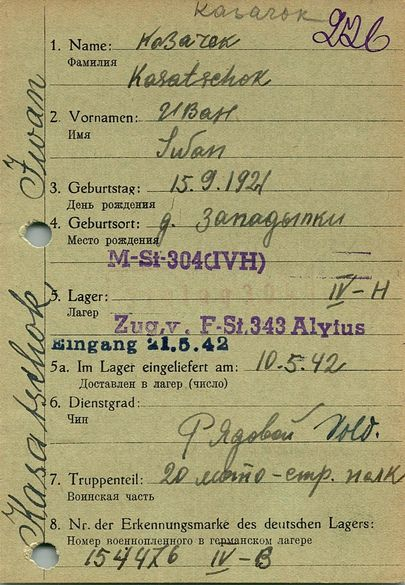 Казачок
226
1. Name: Козачек
Фамилия
Kasatschok
2. Vornamen: Иван
Имя
Iwan
3. Geburtstag: 15.9.1921
День рождения
4. Geburtsort: д. Западынки
Место рождения
M-St-304(IVH)
5. Lager: IV-H
Лагер
Zug.v. F-St.343 Alytus
Eingang 21.5.42
5a. Im Lager eingeliefert am: 10.5.42
Доставлен в лагер (число)
6. Dienstgrad:
Чин
Рядовой Sold.
7. Truppenteil: 20 мото-стр. полк
Воинская часть
8. Nr. der Erkennungsmarke des deutschen Lagers:
Номер военнопленного в германском лагере
154476 IV-B
Kasatschok Iwan